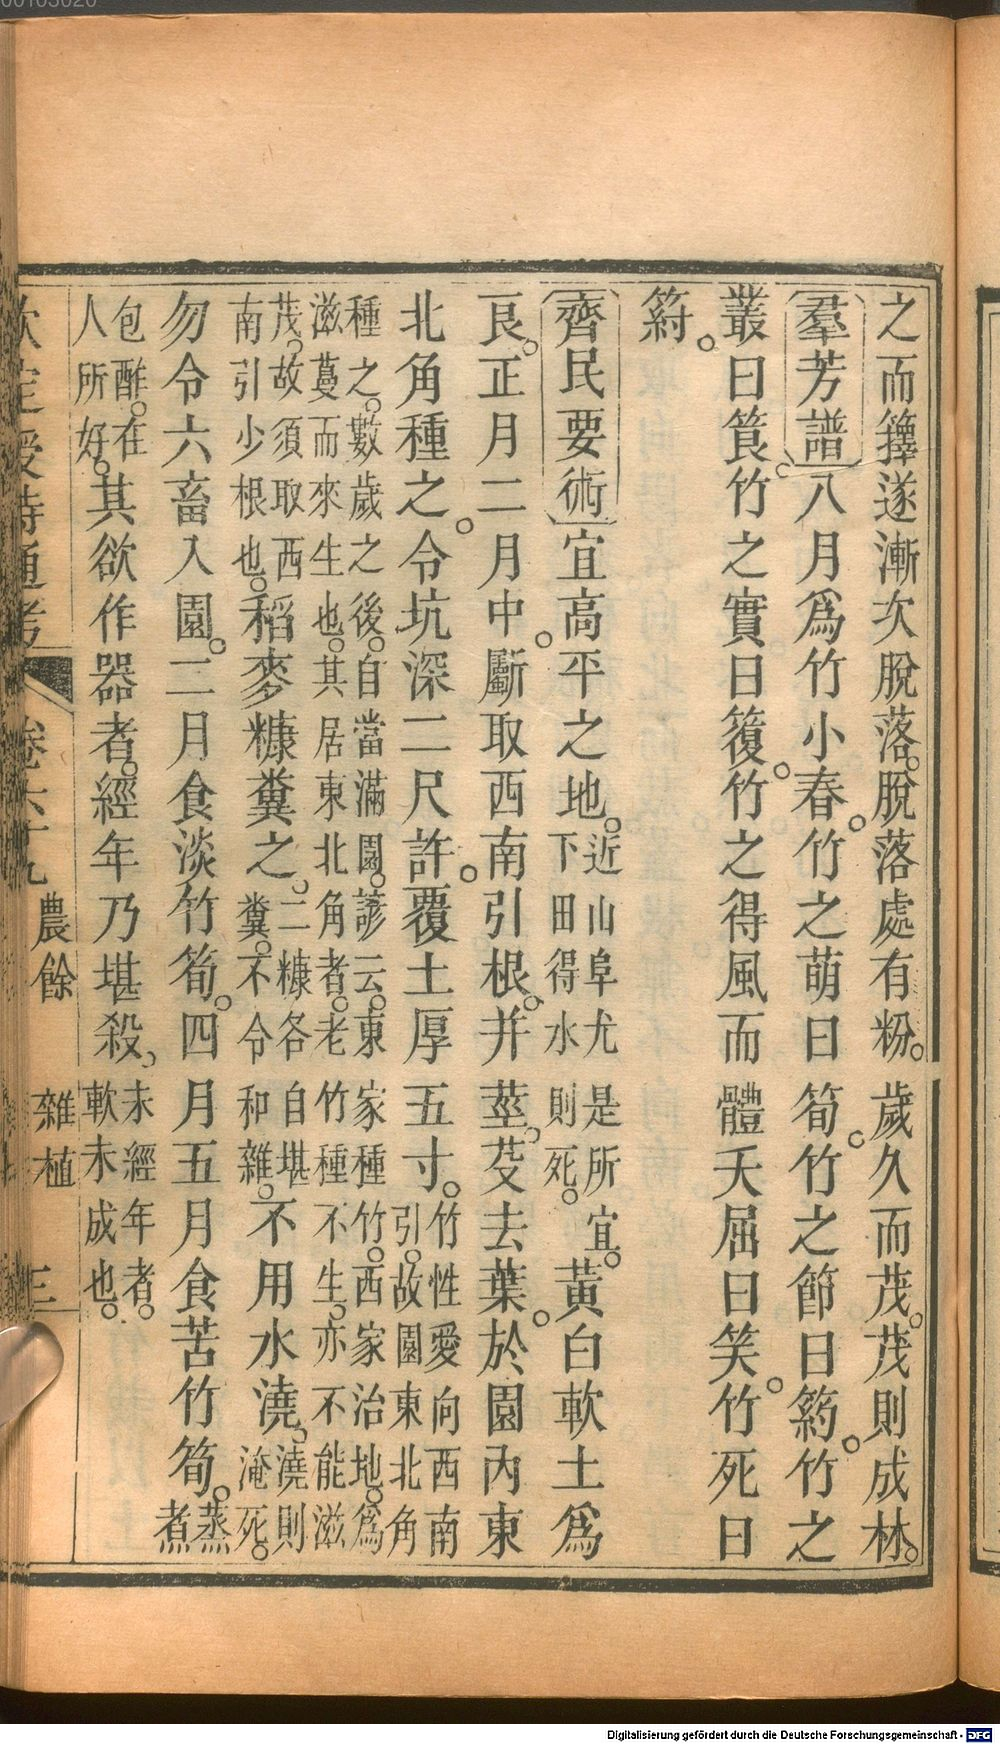 之而籜遂漸次脫落。脫落處有粉。歲久而茂。茂則成林。
羣芳譜八月爲竹小春。竹之萌曰筍。竹之節曰䈾。竹之
叢曰筤。竹之實曰䈏。竹之得風而體夭屈曰笑。竹死曰
䈙。
齊民要術宜高平之地。近山阜尤是所宜。下田得水則死。黃白軟土爲
良。正月二月中。斸取西南引根。并莖。芟去葉。於園內東
北角種之。令坑深二尺許。覆土厚五寸。竹性愛向西南引。故園東北角
種之。數歲之後。自當滿園。諺云。東家種竹。西家治地。爲滋蔓而來生也。其居東北角者。老竹種不生。亦不能滋
茂。故須取西南引少根也。稻麥糠糞之。二糠各自堪糞。不令和雜。不用水澆。澆則淹死。
勿令六畜入園。二月食淡竹筍。四月五月食苦竹筍。蒸煮
包酢。在人所好。其欲作器者。經年乃堪殺。未經年者。軟未成也。
欽定授時通考 卷六十九 農餘 雜植 三
Digitalisierung gefördert durch die Deutsche Forschungsgemeinschaft - DFG